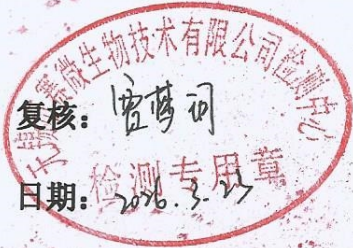 微生物技术有限公司检测中心
复核:
检测专用章
日期: 2026.3.23